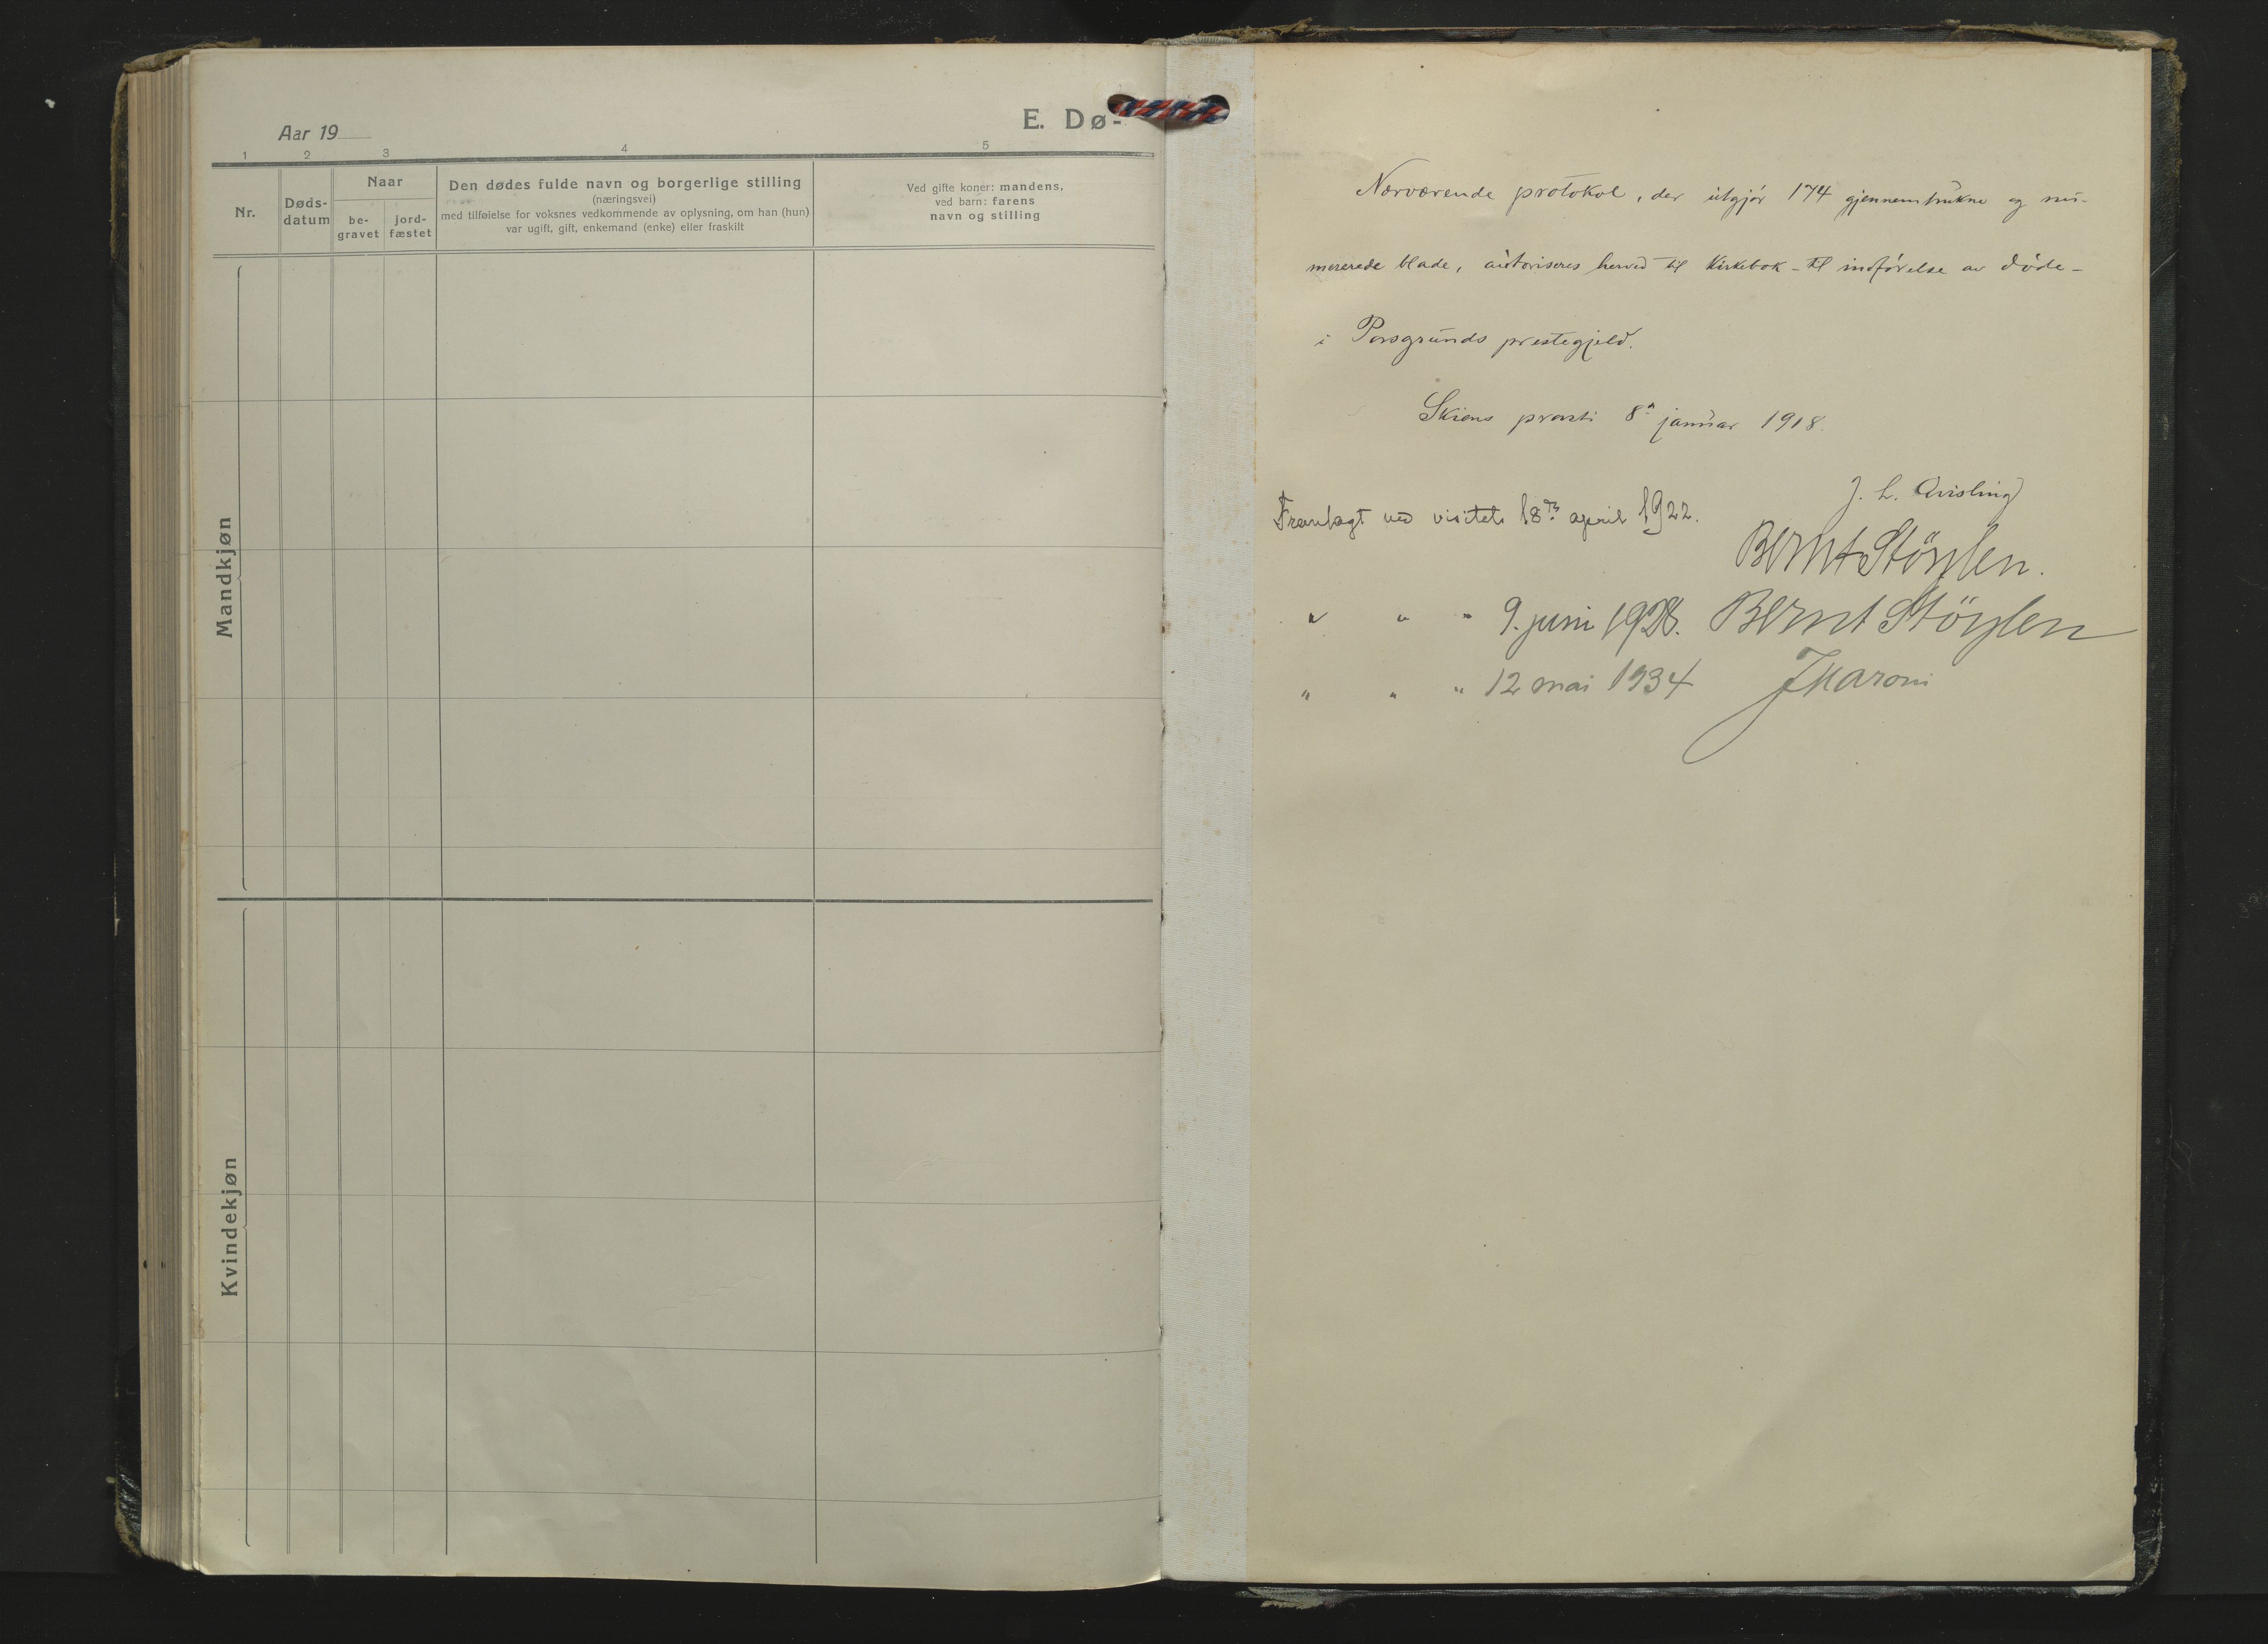 Aar 19
E. Dø-
1 2 3 4 5
Nr.
Døds-
datum
Naar
be-
gravet
jord-
fæstet
Den dødes fulde navn og borgerlige stilling
(næringsvei)
med tilføielse for voksnes vedkommende av oplysning, om han (hun)
var ugift, gift, enkemand (enke) eller fraskilt
Ved gifte koner: mandens,
ved barn: farens
navn og stilling
Mandkjøn
Kvindekjøn
Nærværende protokol, der utgjør 174 gjennemtrukne og nu-
mererede blade, autoriseres herved til Kirkebok - til indførelse av døde -
i Porsgrunds prestegjeld.
Skiens provsti 8de januar 1918.
J. L. Qvisling
Fremlagt ved visitats 18de april 1922.
Bernt Støylen.
" " " 9. juni 1928. Bernt Støylen
" " " 12 mai 1934 J Maroni